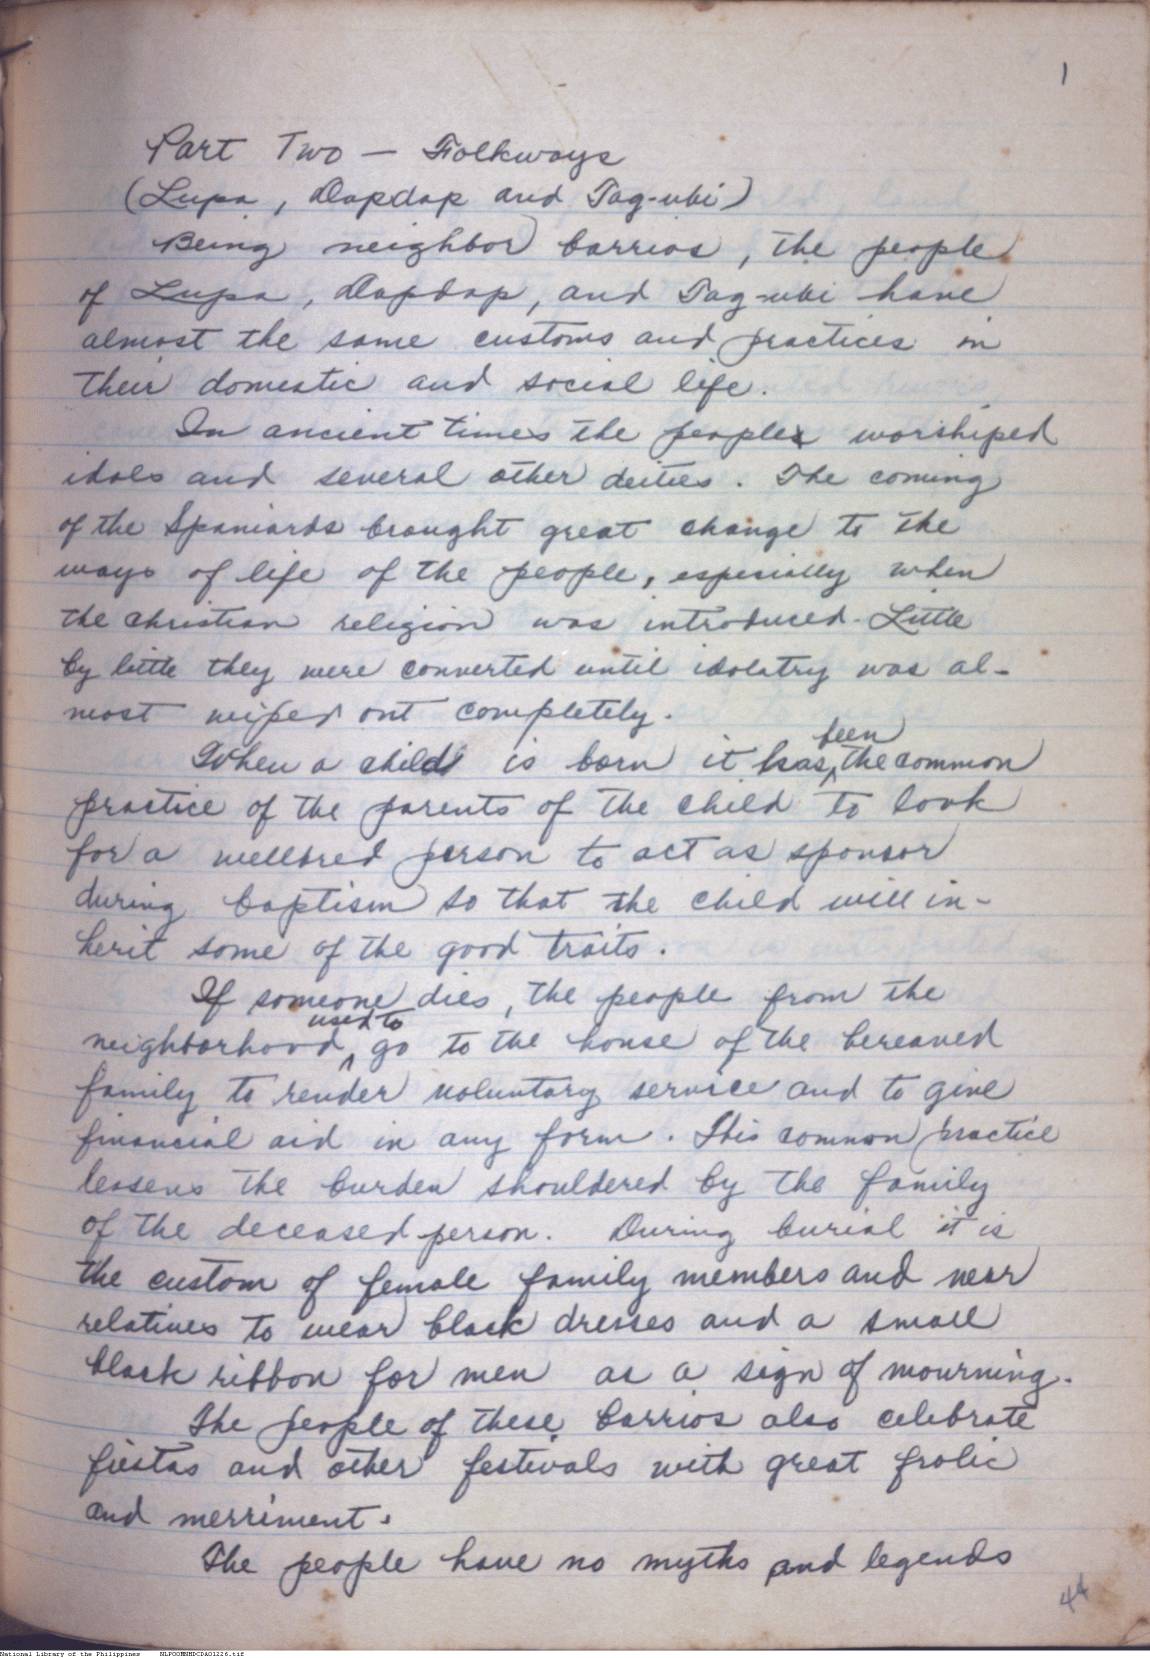 1
Part Two — Folkways
(Lupa, Dapdap and Tag-ubi)
Being neighbor barrios, the people
of Lupa, Dapdap, and Tag-ubi have
almost the same customs and practices in
their domestic and social life.
In ancient times the people worshiped
idols and several other deities. The coming
of the Spaniards brought great change to the
ways of life of the people, especially when
the christian religion was introduced. Little
by little they were converted until idolatry was al-
most wiped out completely.
When a child is born it has been the common
practice of the parents of the child to look
for a wellbred person to act as sponsor
during baptism so that the child will in-
herit some of the good traits.
If someone dies, the people from the
neighborhood used to go to the house of the bereaved
family to render voluntary service and to give
financial aid in any form. This common practice
lessens the burden shouldered by the family
of the deceased person. During burial it is
the custom of female family members and near
relatives to wear black dresses and a small
black ribbon for men as a sign of mourning.
The people of these barrios also celebrate
fiestas and other festivals with great frolic
and merriment.
The people have no myths and legends
44
National Library of the Philippines NLPOOMNHDCDA01226.tif